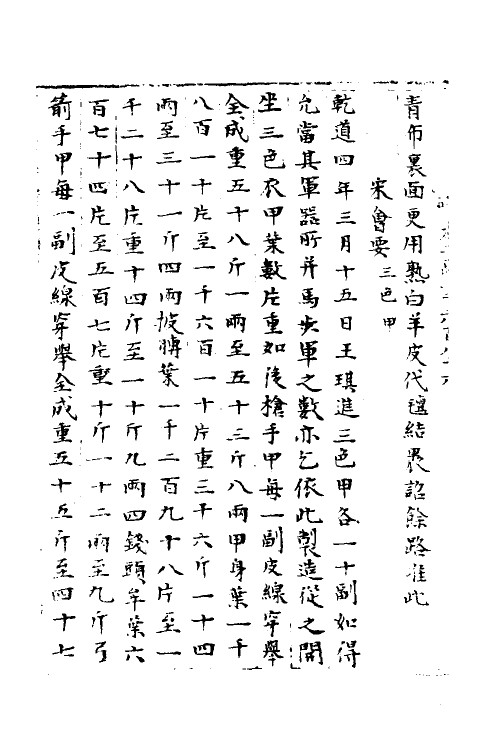 青布裏面更用熟白羊皮代氊結裹詔餘路准此
宋會要 三色甲
乾道四年三月十五日王琪進三色甲各一十副如得
允當其軍器所并馬步軍之數亦乞依此製造從之開
坐三色衣甲葉數片重如後槍手甲每一副皮線穿舉
全成重五十八斤一兩至五十三斤八兩甲身葉一千
八百一十片至一千六百一十片重三千六斤一十四
兩至三十一斤四兩披膊葉一千二百九十八片至一
千二十八片重十四斤至一十斤九兩四錢頭牟葉六
百七十四片至五百七片重十斤一十二兩至九斤弓
箭手甲每一副皮線穿舉全成重五十五斤至四十七